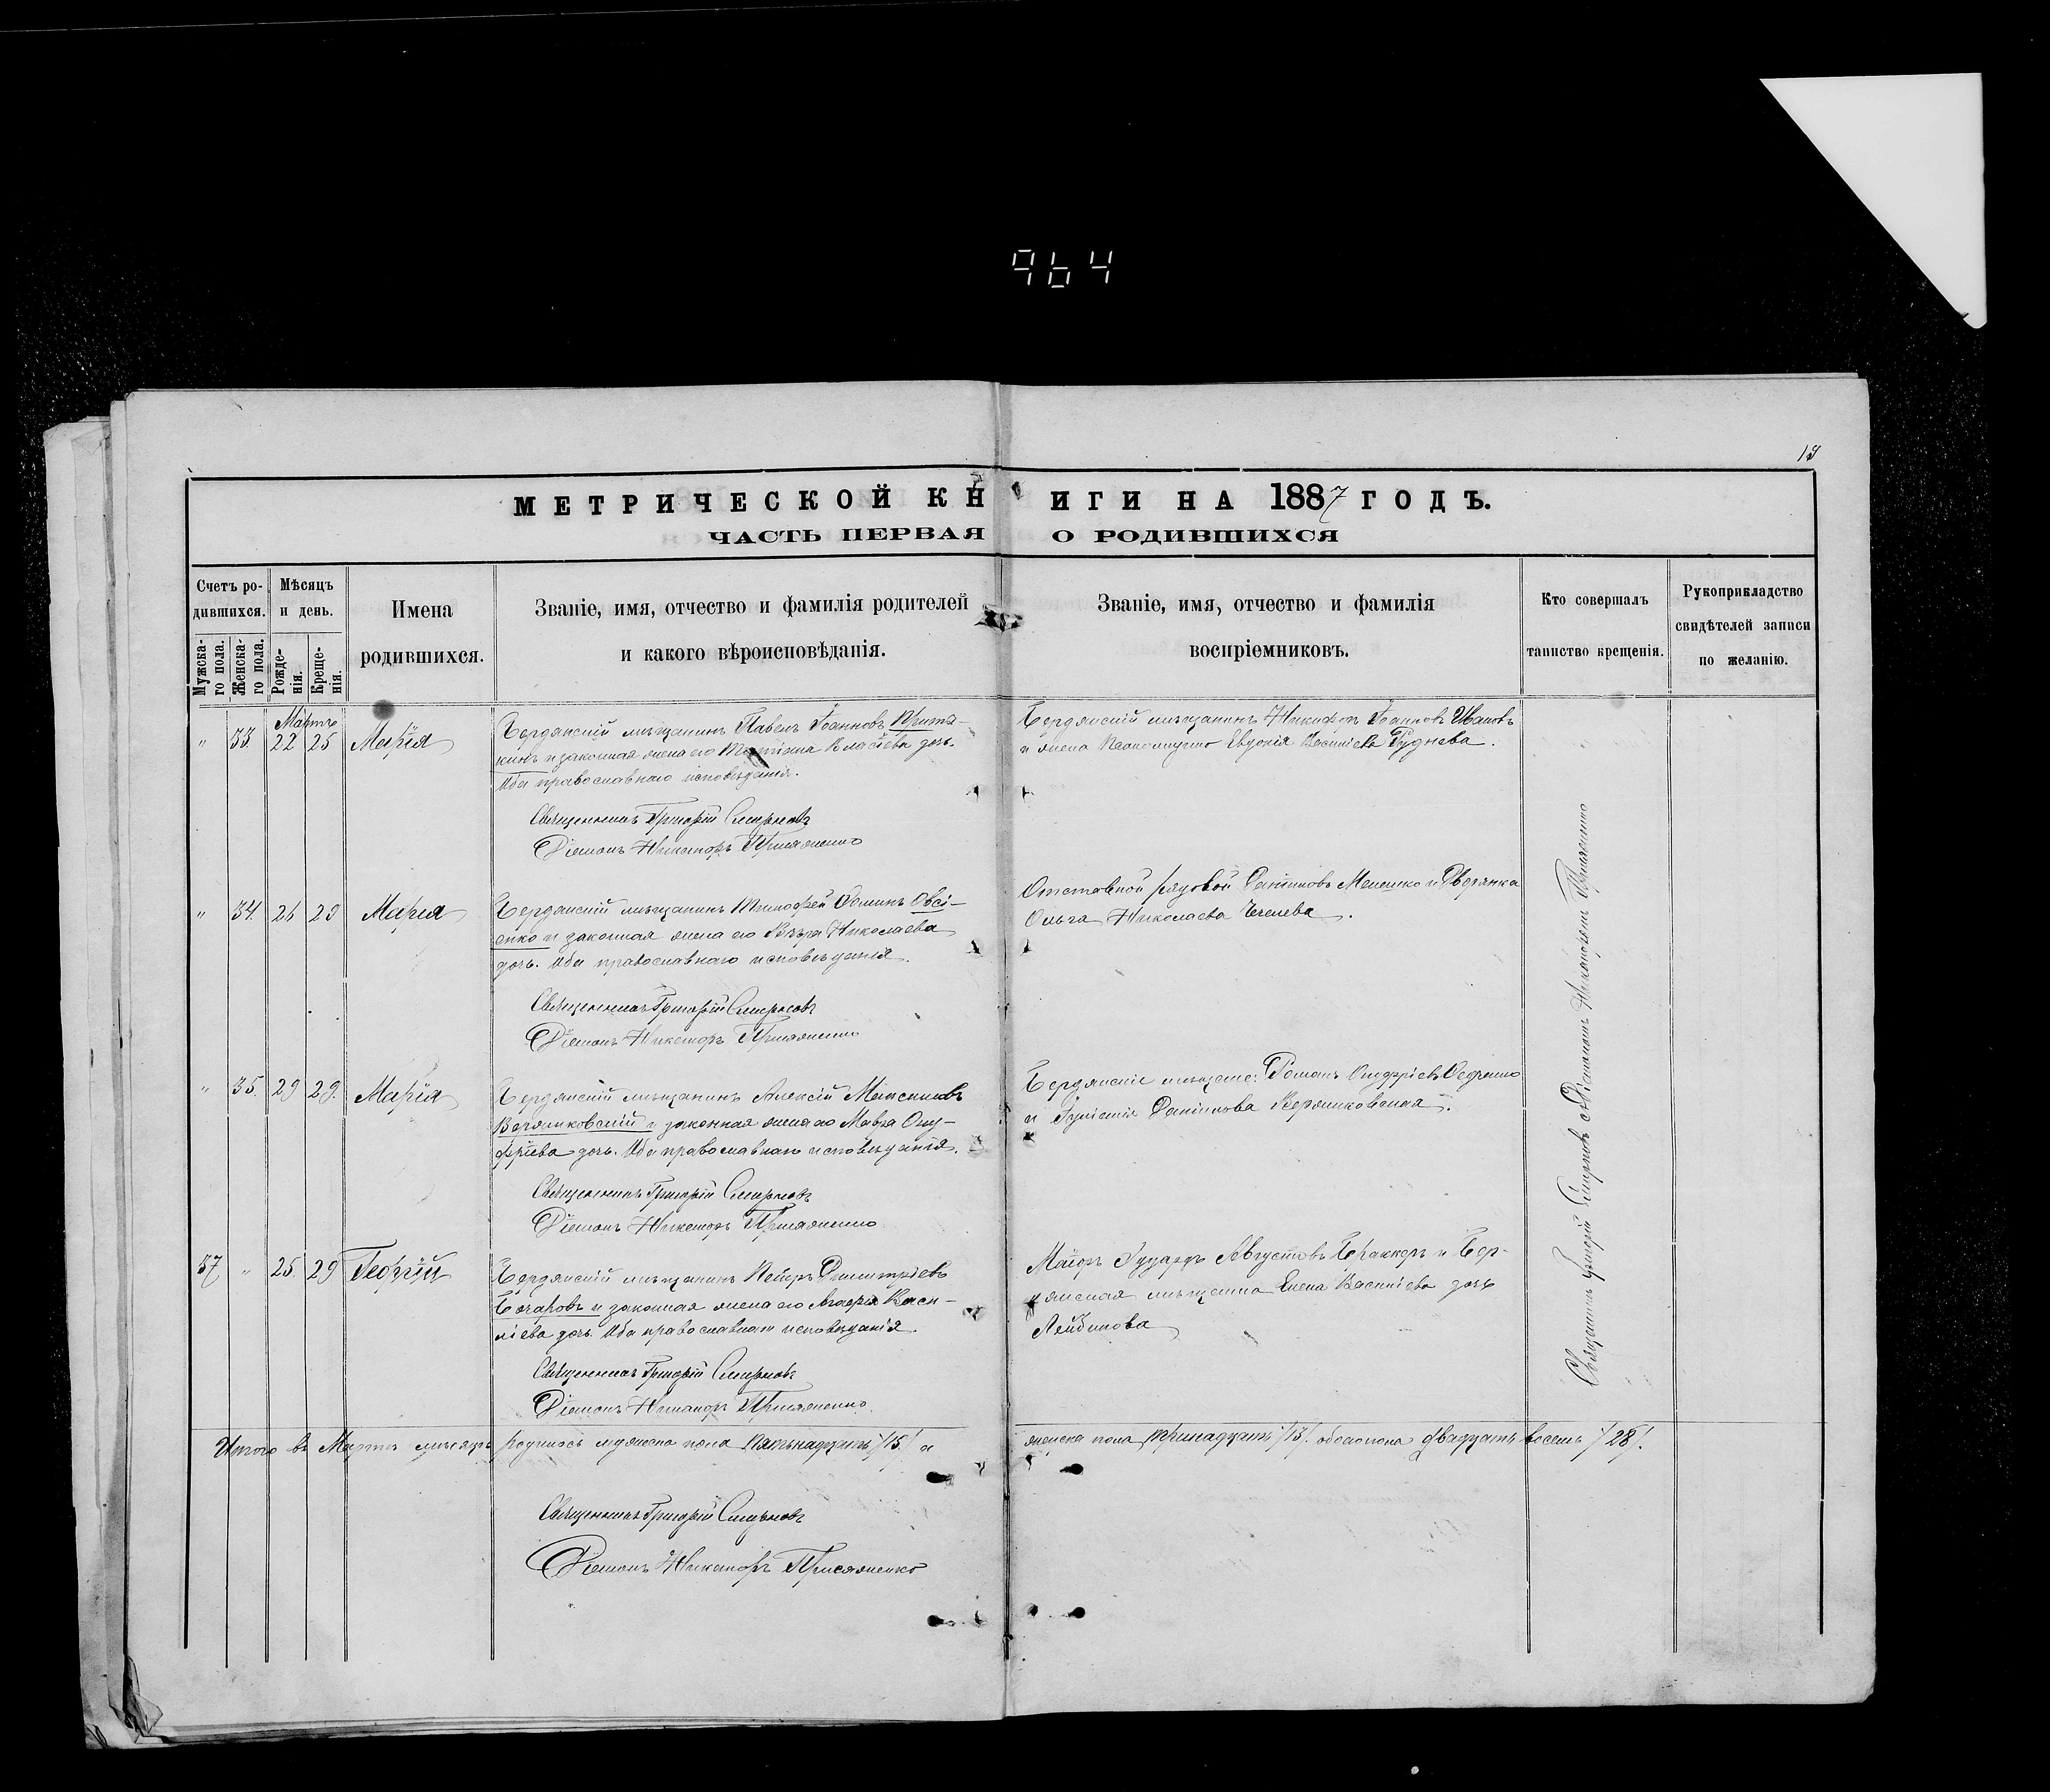 964
19
МЕТРИЧЕСКОЙ КНИГИ НА 1887 ГОДЪ.
ЧАСТЬ ПЕРВАЯ О РОДИВШИХСЯ
Счетъ ро-
дившихся.
Мужска-
го пола.
Женска-
го пола.
Мѣсяцъ
и день.
Рожде-
нія.
Креще-
нія.
Имена
родившихся.
Званіе, имя, отчество и фамилія родителей
и какого вѣроисповѣданія.
Званіе, имя, отчество и фамилія
воспріемниковъ.
Кто совершалъ
таинство крещенія.
Рукоприкладство
свидѣтелей записи
по желанію.
Мартъ
" 33. 22 25 Марія
Бердянскій мѣщанинъ Павелъ Іоанновъ
и законная жена его Татіана Власіева дочь.
Оба православнаго исповѣданія.
Священникъ Григорій Смирновъ
Діаконъ Никаноръ Присяженко
Бердянскій мѣщанинъ Никифоръ Іоанновъ Ивановъ
и жена Евдокія Василіева Руднева.
" 34. 26 29 Марія
Бердянскій мѣщанинъ Тимофей Ѳоминъ Овсі-
енко и законная жена его Вѣра Николаева
дочь. Оба православнаго исповѣданія.
Священникъ Григорій Смирновъ
Діаконъ Никаноръ Присяженко
Отставной рядовой Мелешко и Дворянка
Ольга Николаева
" 35. 29 29. Марія
Бердянскій мѣщанинъ Алексій Максимовъ
Верниковскій и законная жена его Мавра Ону-
фріева дочь. Оба православнаго исповѣданія.
Священникъ Григорій Смирновъ
Діаконъ Никаноръ Присяженко
Бердянскіе мѣщане: Романъ Онуфріевъ
и Іуліанія Даніилова Верниковская.
37 " 25. 29 Георгій
Бердянскій мѣщанинъ Петръ Димитріевъ
Бочаровъ и законная жена его Агафія Васи-
ліева дочь. Оба православнаго исповѣданія.
Священникъ Григорій Смирновъ
Діаконъ Никаноръ Присяженко
Маіоръ Эдуардъ Августовъ и Бер-
дянская мѣщанка Елена Василіева дочь
Лейбикова
Священникъ Григорій Смирновъ съ Діакономъ Никаноромъ Присяженко
Итого въ Мартѣ мѣсяцѣ родилось мужеска пола пятьнадцать /15/ и женска пола тринадцать /13/. обоего пола двадцать восемь /28/.
Священникъ Григорій Смирновъ
Діаконъ Никаноръ Присяженко